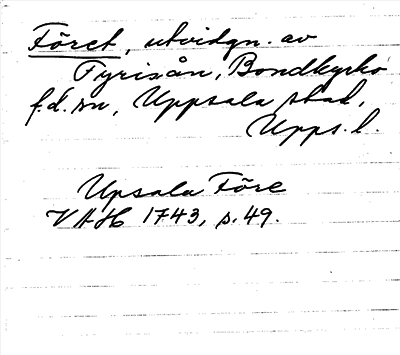 Föret, utvidgn. av
Fyrisån, Bondkyrko
f.d. sn, Uppsala stad,
Upps. l.
Upsala Före
VAH 1743, s. 49.